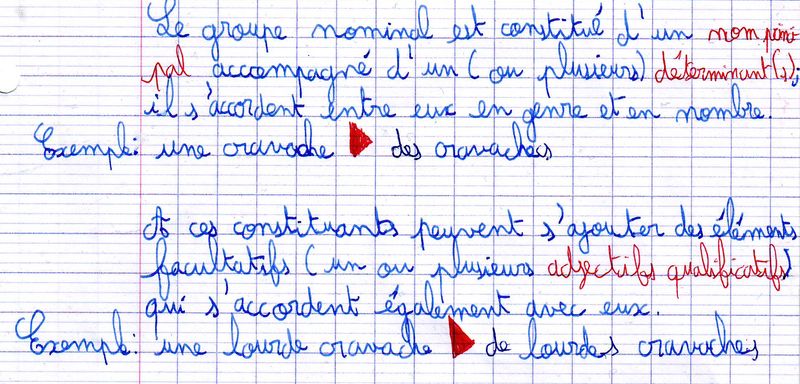 Le groupe nominal est constitué d'un nom princi-
pal accompagné d'un (ou plusieurs) déterminant(s);
ils s'accordent entre eux en genre et en nombre.
Exemple: une cravache ▶ des cravaches
A ces constituants peuvent s'ajouter des éléments
facultatifs (un ou plusieurs adjectifs qualificatifs)
qui s'accordent également avec eux.
Exemple: une lourde cravache ▶ de lourdes cravaches